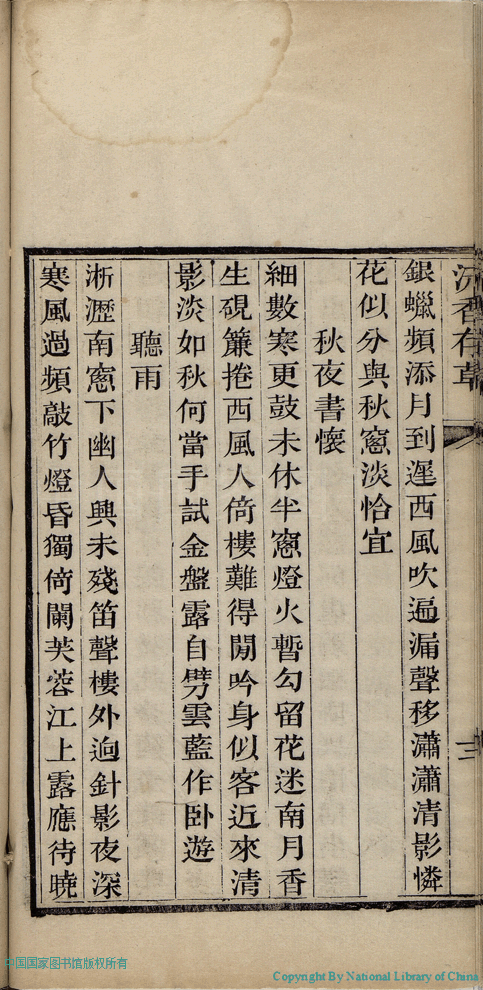 沅香存草
三
銀蠟頻添月到遲西風吹遍漏聲移瀟瀟清影憐
花似分與秋窻淡恰宜
秋夜書懷
細數寒更鼓未休半窻燈火暫勾留花迷南月香
生硯簾捲西風人倚樓難得閒吟身似客近來清
影淡如秋何當手試金盤露自劈雲藍作卧遊
聽雨
淅瀝南窻下幽人興未殘笛聲樓外逈針影夜深
寒風過頻敲竹燈昏獨倚闌芙蓉江上露應待曉
中国国家图书馆版权所有
Copyright By National Library of China